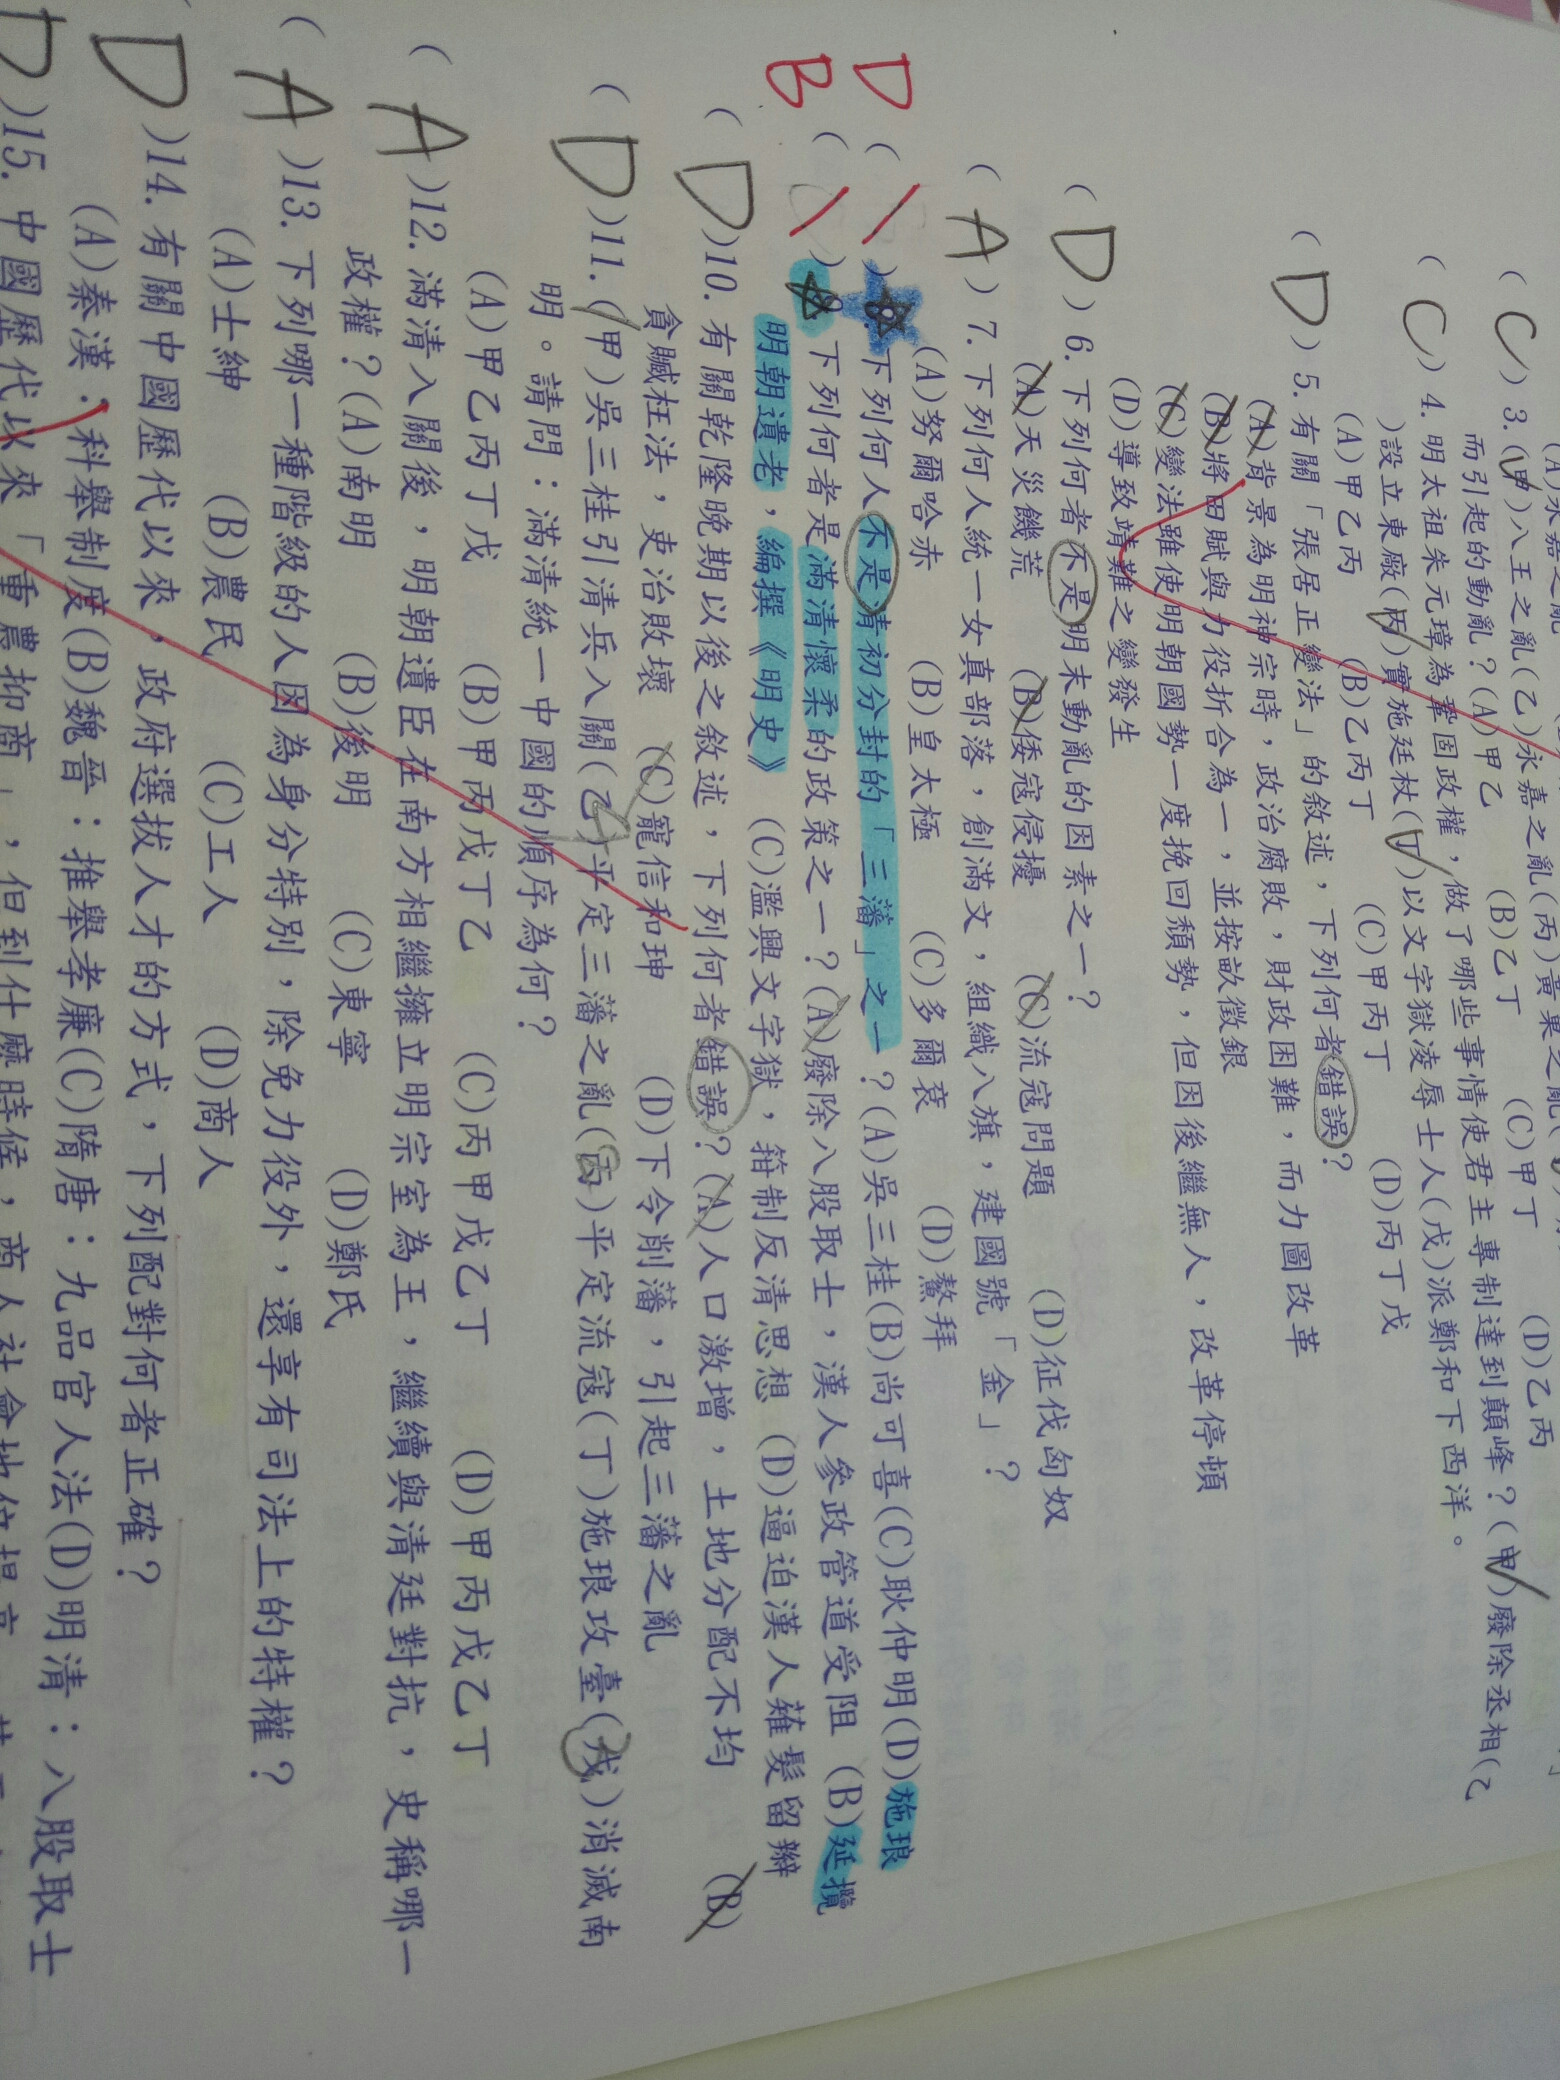 (C)3.(甲)八王之亂(乙)永嘉之亂(丙)黃巢之亂(
而引起的動亂?(A)甲乙 (B)乙丁 (C)甲丁 (D)乙丙
(C)4.明太祖朱元璋為鞏固政權,做了哪些事情使君主專制達到顛峰?(甲)廢除丞相(乙
)設立東廠(丙)實施廷杖(丁)以文字獄凌辱士人(戊)派鄭和下西洋。
(A)甲乙丙 (B)乙丙丁 (C)甲丙丁 (D)丙丁戊
(D)5.有關「張居正變法」的敘述,下列何者錯誤?
(A)背景為明神宗時,政治腐敗,財政困難,而力圖改革
(B)將田賦與力役折合為一,並按畝徵銀
(C)變法雖使明朝國勢一度挽回頹勢,但因後繼無人,改革停頓
(D)導致靖難之變發生
(D)6.下列何者不是明末動亂的因素之一?
(A)天災饑荒 (B)倭寇侵擾 (C)流寇問題 (D)征伐匈奴
(A)7.下列何人統一女真部落,創滿文,組織八旗,建國號「金」?
(A)努爾哈赤 (B)皇太極 (C)多爾袞 (D)鰲拜
D ( )下列何人不是清初分封的「三藩」之一?(A)吳三桂(B)尚可喜(C)耿仲明(D)施琅
B ( )下列何者是滿清懷柔的政策之一?(A)廢除八股取士,漢人參政管道受阻 (B)延攬
明朝遺老,編撰《明史》 (C)濫興文字獄,箝制反清思想 (D)逼迫漢人薙髮留辮
(D)10.有關乾隆晚期以後之敘述,下列何者錯誤?(A)人口激增,土地分配不均 (B)
貪贓枉法,吏治敗壞 (C)寵信和珅 (D)下令削藩,引起三藩之亂
(D)11.(甲)吳三桂引清兵入關(乙)平定三藩之亂(丙)平定流寇(丁)施琅攻臺(戊)消滅南
明。請問:滿清統一中國的順序為何?
(A)甲乙丙丁戊 (B)甲丙戊丁乙 (C)丙甲戊乙丁 (D)甲丙戊乙丁
(A)12.滿清入關後,明朝遺臣在南方相繼擁立明宗室為王,繼續與清廷對抗,史稱哪一
政權?(A)南明 (B)後明 (C)東寧 (D)鄭氏
(A)13.下列哪一種階級的人因為身分特別,除免力役外,還享有司法上的特權?
(A)士紳 (B)農民 (C)工人 (D)商人
(D)14.有關中國歷代以來,政府選拔人才的方式,下列配對何者正確?
(A)秦漢:科舉制度(B)魏晉:推舉孝廉(C)隋唐:九品官人法(D)明清:八股取士
D)15.中國歷代以來「重農抑商」,但到什麼時候,商人社會地位提高